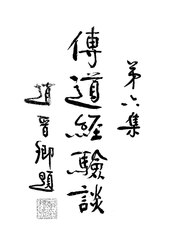 第六集
傳道經驗談
趙晉卿題